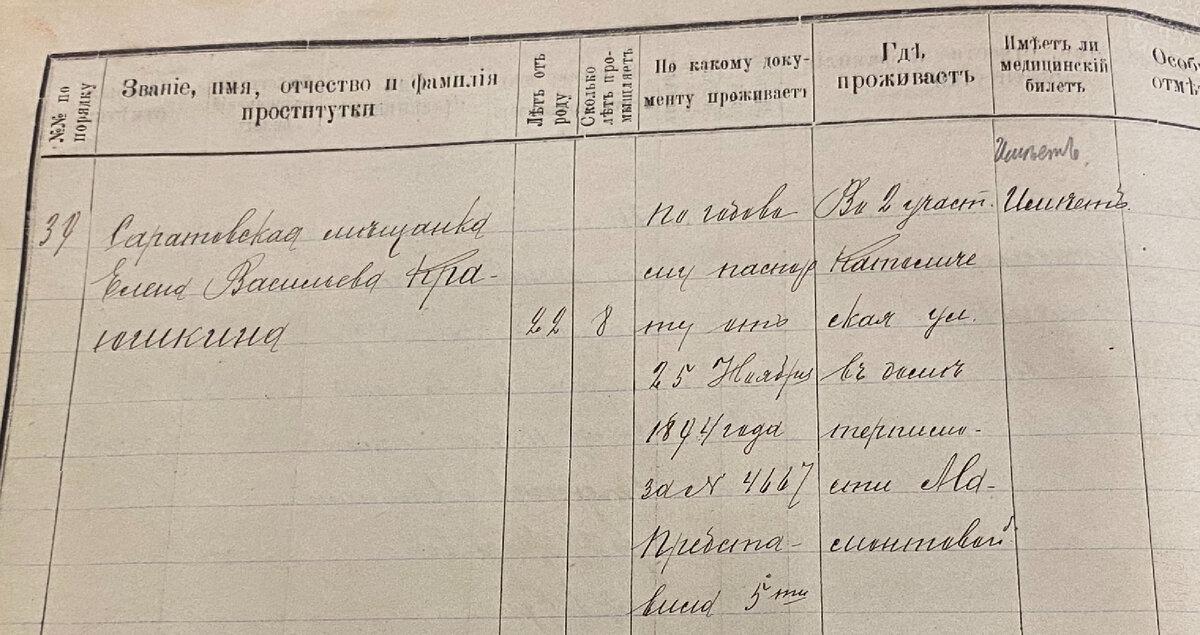 №№ по порядку
Званіе, имя, отчество и фамилія проститутки
Лѣтъ отъ роду
Сколько лѣтъ промышляетъ
По какому документу проживаетъ
Гдѣ проживаетъ
Имѣетъ ли медицинскій билетъ
Особ
отмѣ
Имѣетъ.
39
Саратовская мѣщанка
Елена Васильева Кра-
юшкина
22
8
По годово
му паспор
ту отъ
25 Ноября
1894 года
за № 4667
Предста-
вила 5ти
Во 2 участ.
Католиче
ская ул.
въ домѣ
терпимо-
сти Ма-
монтовой
Имѣетъ